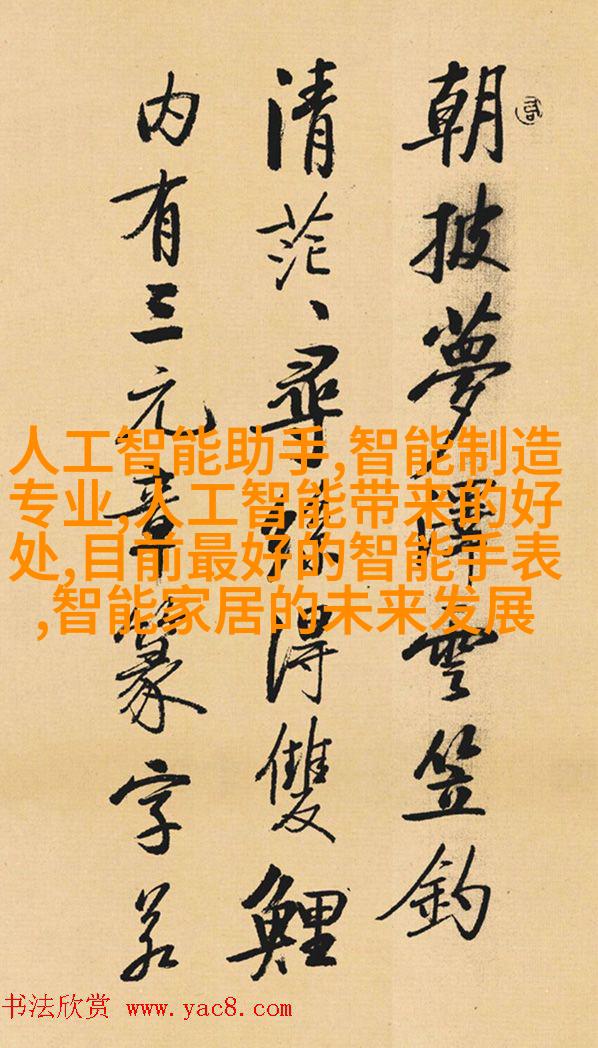 朝披夢澤雲笠釣
清茫、尋絲得雙鯉
内有三元章篆字若
人工智能助手,智能制造
专业,人工智能带来的好
处,目前最好的智能手表
,智能家居的未来发展
书法欣赏 www.yac8.com